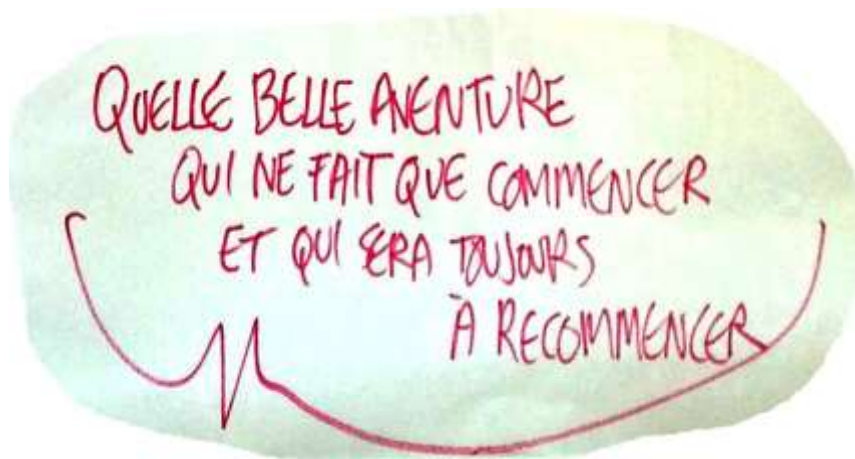 QUELLE BELLE AVENTURE
QUI NE FAIT QUE COMMENCER
ET QUI SERA TOUJOURS
À RECOMMENCER